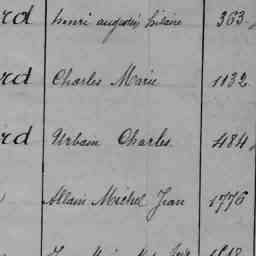 rd henri augustin hilaire 363
rd Charles Marie 1132
rd Urbain Charles 484
Allain Michel Jean 1776